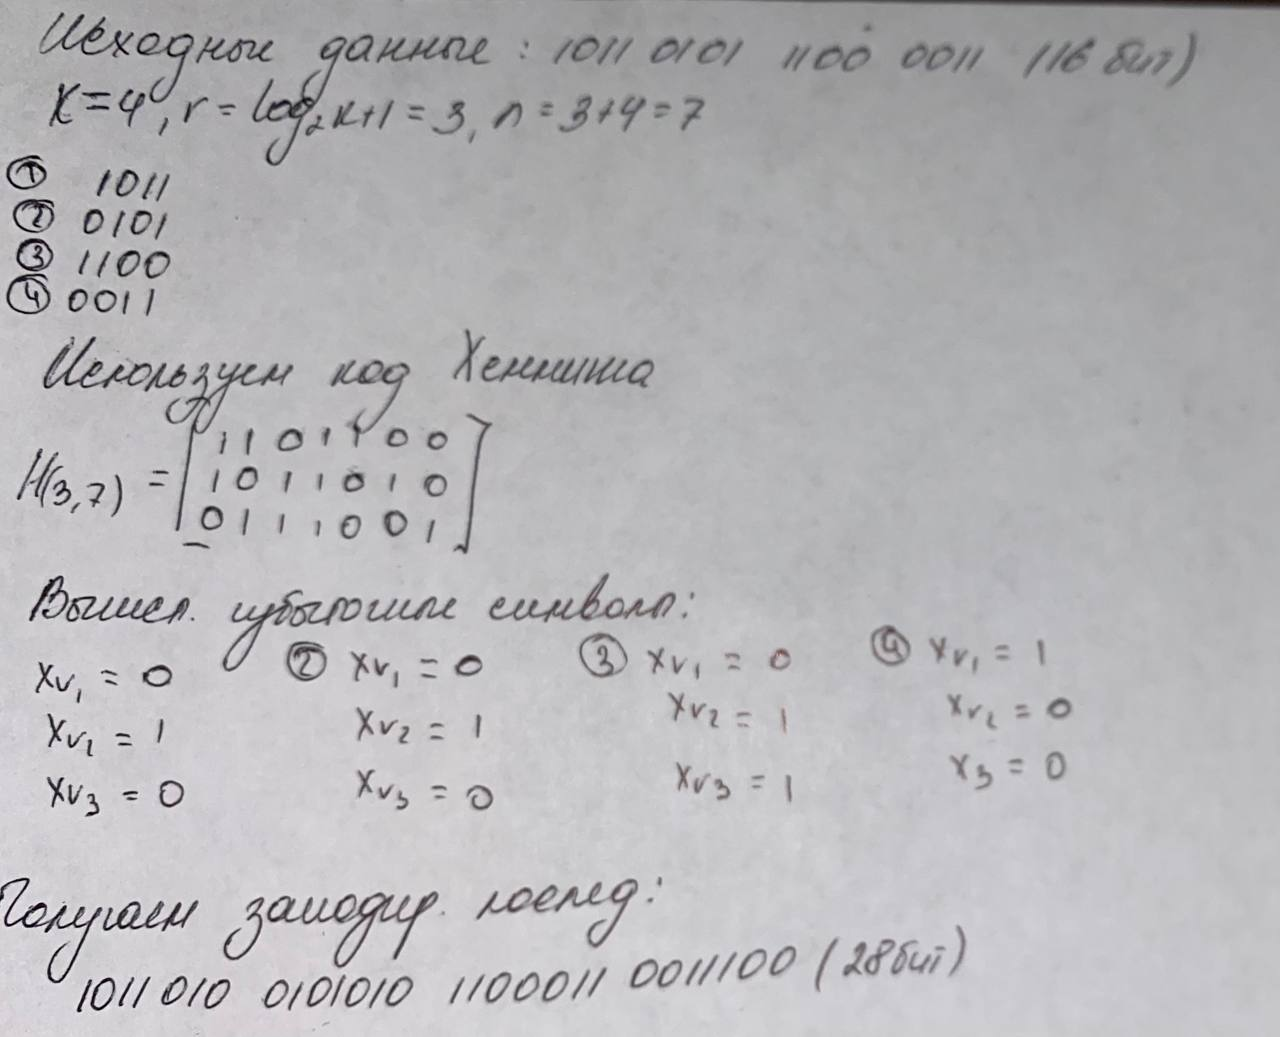 Исходные данные : 1011 0101 1100 0011 (16 бит)
K=4, r = log₂k+1 = 3, n = 3+4=7
① 1011
② 0101
③ 1100
④ 0011
Используем код Хемминга
H(3,7) = [1 1 0 1 1 0 0
1 0 1 1 0 1 0
0 1 1 1 0 0 1]
Вычисл. избыточные символы:
Xv₁ = 0 ② Xv₁ = 0 ③ Xv₁ = 0 ④ Xv₁ = 1
Xv₂ = 1 Xv₂ = 1 Xv₂ = 1 Xv₂ = 0
Xv₃ = 0 Xv₃ = 0 Xv₃ = 1 X₃ = 0
Получаем закодир. послед:
1011010 0101010 1100011 0011100 (28бит)